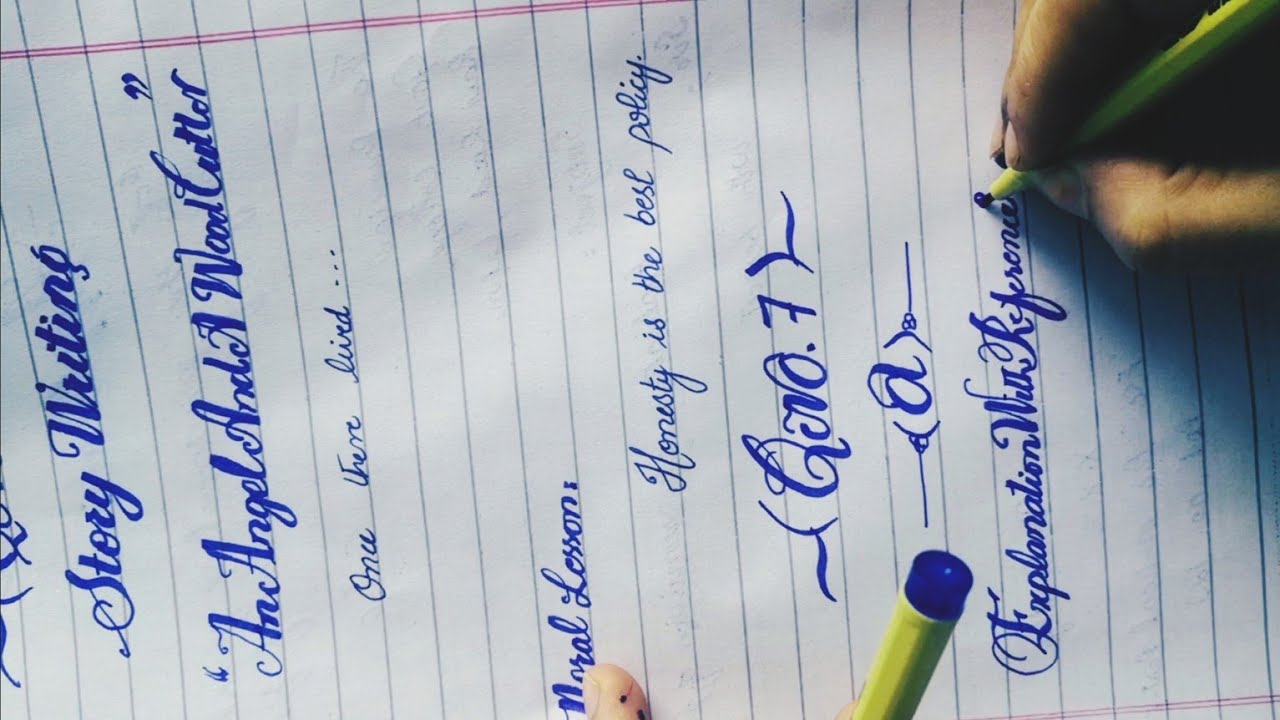 Story Writing
“AncAngelcAndcAWoodCutter”
Once there lived...
Moral Lesson:
Honesty is the best policy.
(Q:no.7)
(a)
Explanation With Reference